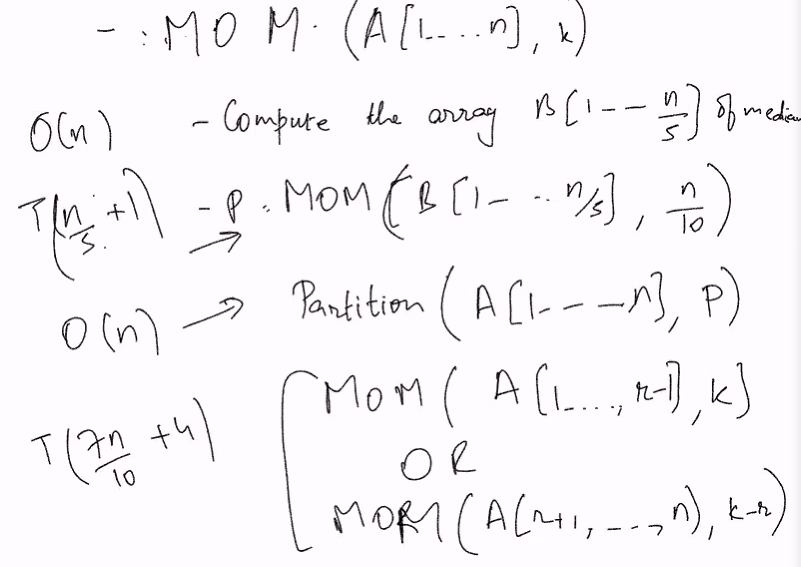 - : MOM. (A[1....n], k)
O(n) - Compute the array B[1-- n/5] of median
T(n/5 +1) - P : MOM (B[1-..n/5], n/10)
O(n) → Partition (A[1---n], P)
MOM( A[1...., r-1], k]
T(7n/10 +4)
OR
MOM(A[r+1, ---, n), k-r)